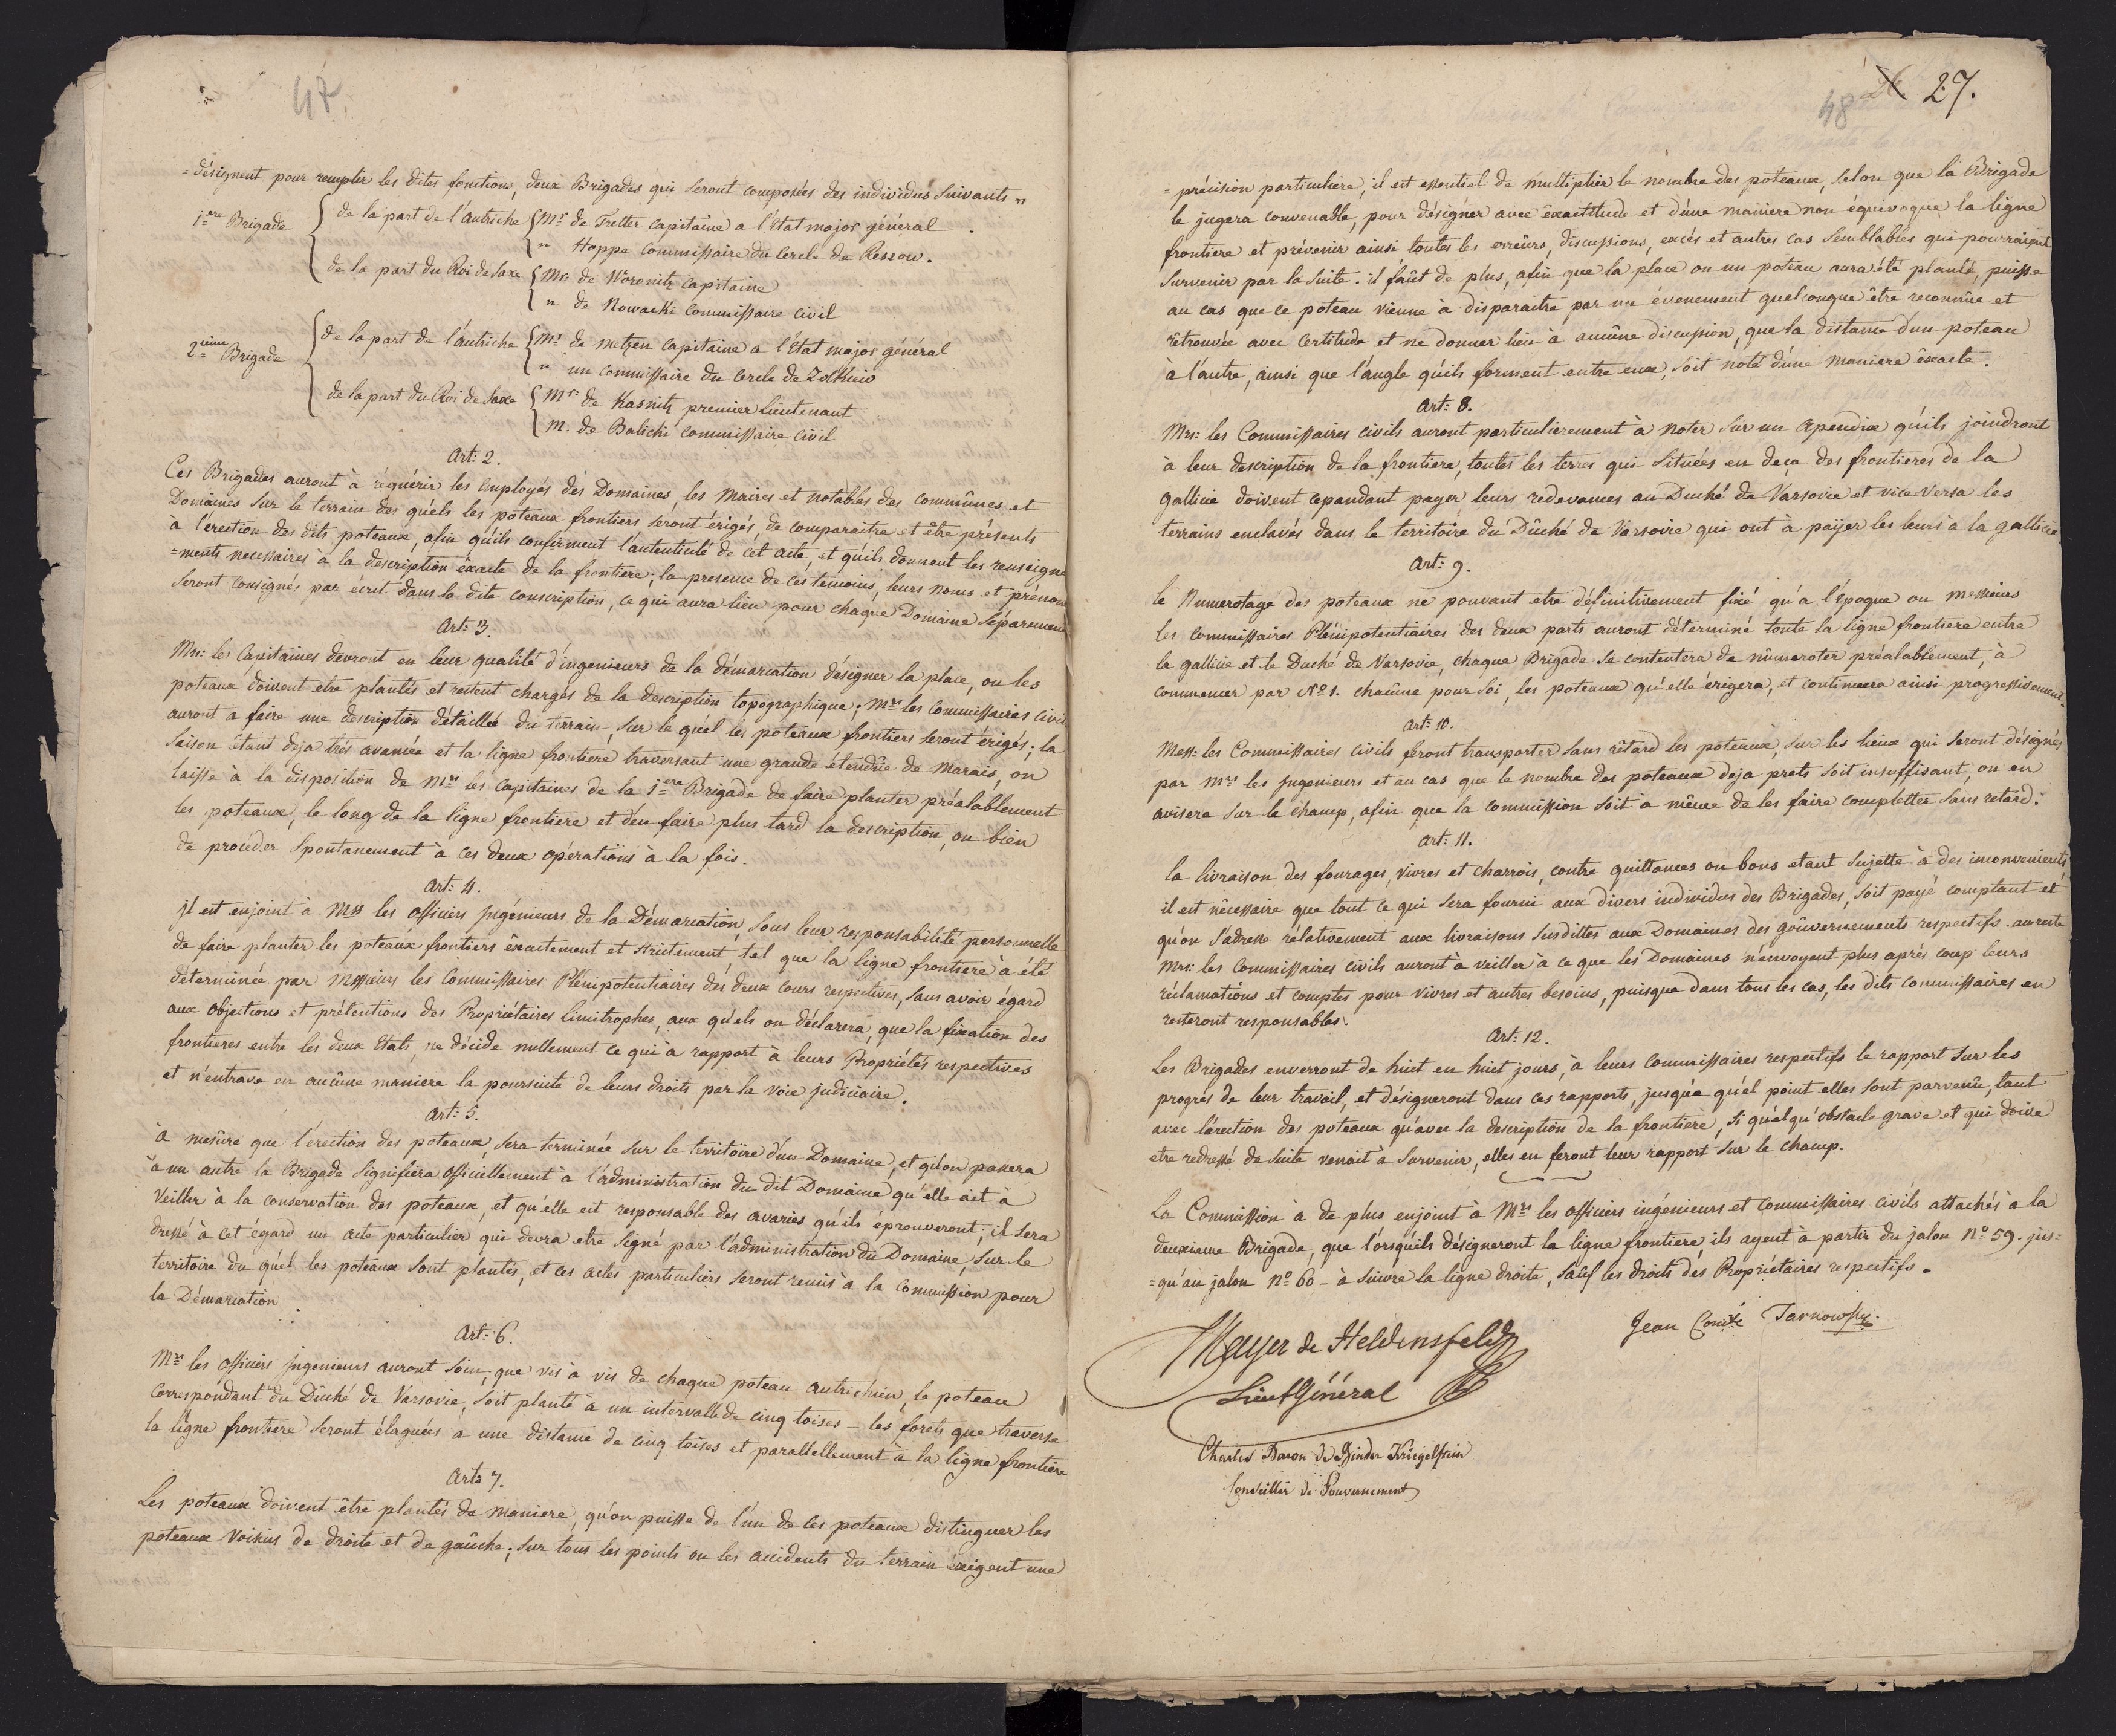 47.
=désignent pour remplir les dites fonctions, deux Brigades qui seront composées des individus Suivants "
1ere Brigade
de la part de l'Autriche
Mr de Tretter Capitaine a l'Etat major général
" Hoppe Commissaire du Cercle de Ressow.
de la part du Roi de Saxe
Mr: de Woronitz Capitaine
" de Nowacki Commissaire Civil
2ieme Brigade
de la part de l'autriche
Mr: de Metzen Capitaine a l'Etat major général
" un Commissaire du Cercle de Zolkiew
de la part du Roi de Saxe
Mr: de Kasnitz premier Lieutenant
M. de Balicki Commissaire Civil
Art: 2.
Ces Brigades auront à réquérir les Employés des Domaines, les Maires et notables des Commûnes et
Domaines Sur le terrain des quéls les poteaux frontiers séront érigés, de comparaitre et être présents
à l'érection des dits poteaux, afin qu'ils confirment l'autenticité de cét acte, et qu'ils donnent les renseigne
=ments necessaires à la description éxacte de la frontiere; la presence de ces temoins, leurs noms et prénoms
Seront consignés par écrit dans la dite conscription, ce qui aura lieu pour chaque Domaine Séparement
Art: 3.
Mrs: les Capitaines devront en leur qualité d'ingenieurs de la démarcation désigner la place, ou les
poteaux doivent etre plantés et restent chargés de la description topographique; Mrs les Commissaires Civils
auront à faire une description détaillée du terrain, Sur le quél les poteaux frontiers seront érigés; la
Saison étant deja trés avancée et la ligne frontiere traversant une grande étendûe de Marais, on
laisse à la disposition de Mrs les Capitaines de la 1ere Brigade de faire planter préalablement
les poteaux, le long de la ligne frontiere et d'en faire plus tard la description, ou bien
de procéder Spontanement à ces deux opérations à la fois.
Art: 4.
Jl est enjoint à Mss les Officiers Jngénieurs de la Démarcation, Sous leur responsabilité personnelle
de faire planter les poteaux frontiers éxactement et strictement, tel que la ligne frontiere à été
determinée par Messieurs les Commissaires Plénipotentiaires des deux Cours respectives, Sans avoir égard
aux objections et prétentions des Propriétaires limitrophes, aux qu'els on déclarera, que la fixation des
frontieres entre les deux Etats, ne décide nullement ce qui à rapport à leurs Propriétés respectives
et n'entrave en aucûne maniere la poursuite de leurs droits par la Voie judiciaire.
Art: 5.
à mesûre que l'érection des poteaux, sera terminée sur le territoire d'un Domaine, et qu'on passera
à un autre la Brigade Signifiera Officiellement à l'administration du dit Domaine qu'elle ait à
Veiller à la conservation des poteaux, et qu'elle est responsable des avaries qu'ils éprouveront; il sera
dressé à cet égard un acte particulier qui devra etre Signé par l'administration du Domaine, Sur le
territoire du quél les poteaux sont plantés, et ces actes particuliers seront remis à la Commission pour
la Démarcation.
Art: 6.
Mrs les officiers Jngenieurs auront soin, que vis à vis de chaque poteau autrichien, le poteau
Correspondant du Dûché de Varsovie, soit planté à un intervalle de cinq toises - les forets que traverse
la ligne frontiere Seront élaguées à une distance de cinq toises et parallellement à la ligne frontiere
Art: 7.
Les poteaux doivent être plantés de Maniere, qu'on puisse de l'un de ces poteaux distinguer les
poteaux Voisins de droite et de gaûche; Sur tous les points ou les accidents du terrain éxigent une
48 27.
=précision particuliere, il est essentiel de multiplier le nombre des poteaux, selon que la Brigade
le jugera convenable, pour désigner avec éxactitude et d'une maniere non équivoque la ligne
frontiere et prévenir ainsi toutes les erreûrs, discussions, excés et autres cas Semblables qui pourraient
Survenir par la Suite. il faût de plus, afin que la place ou un poteau aura été planté, puisse
au cas que ce poteau vienne à disparaitre par un évenement quelconque être reconnûe et
rétrouvée avec Certitude et ne donner lieu à aucûne discussion, que la distance d'un poteau
à l'autre, ainsi que l'angle qu'ils forment entre eux, soit noté d'une Maniere éxacte.
Art: 8.
Mrs: les Commissaires Civils auront particulierement à Noter Sur un Apendix qu'ils joindront
à leur description de la frontiere, toutes les terres qui Situées en deca des frontieres de la
gallicie doivent cependant payer leurs redevances au Duché de Varsovie et vice Versa les
terrains enclavés dans le territoire du Dûché de Varsovie qui ont à payer les leurs à la gallicie.
Art: 9.
Le Numerotage des poteaux ne pouvant etre définitivement fixé qu'a l'époque ou Messieurs
les Commissaires Plénipotentiaires des deux parts auront déterminé toute la ligne frontiere entre
la gallicie et le Duché de Varsovie, Chaque Brigade se contentera de nûmeroter préalablement, à
commencer par No 1. chacûne pour Soi, les poteaux qu'elle érigera, et continuera ainsi progressivement.
Art: 10.
Mess: les Commissaires Civils feront transporter Sans rétard les poteaux, Sur les lieux qui seront désignés
par Mrs les Jngenieurs et au cas que le nombre des poteaux deja prets soit insuffisant, on en
avisera Sur le champ, afin que la Commission Soit à même de les faire completter Sans retard.
Art: 11.
la livraison des fourages, vivres et charrois, contre quittances ou bons etant Sujette à des inconvenients
il est nécessaire que tout ce qui Sera fourni aux divers individus des Brigades, soit payé comptant et
qu'on S'adresse rélativement aux livraisons Susdittes aux Domaines des goûvernements respectifs. au reste
Mrs: les Commissaires Civils auront à veiller à ce que les Domaines n'envoyent plus aprés coup leurs
réclamations et comptes pour vivres et autres besoins, puisque dans tous les cas, les dits Commissaires en
resteront responsables.
Art: 12.
Les Brigades enverront de huit en huit jours, à leurs Commissaires respectifs le rapport Sur les
progrés de leur travail, et désigneront dans ces rapports, jusqu'a qu'el point elles sont parvenû, tant
avec l'érection des poteaux qu'avec la description de la frontiere, Si quélqu'obstacle grave et qui doive
etre redressé de Suite venait à Survenir, elles en feront leur rapport Sur le champ.
La Commission à de plus enjoint à Mrs les officiers ingénieurs et Commissaires Civils attachés à la
deuxieme Brigade, que lorsqu'ils désigneront la ligne frontiere, ils ayent à partir du jalon No 59. jus=
=qu'au jalon No 60 - à suivre la ligne droite, Saûf les droits des Propriétaires respectifs.
Mayer de Heldensfeld
Lieut Général
Jean Comte Tarnowski.
Charles Baron de Binder Kriegelstein
Conseiller de Gouvernement